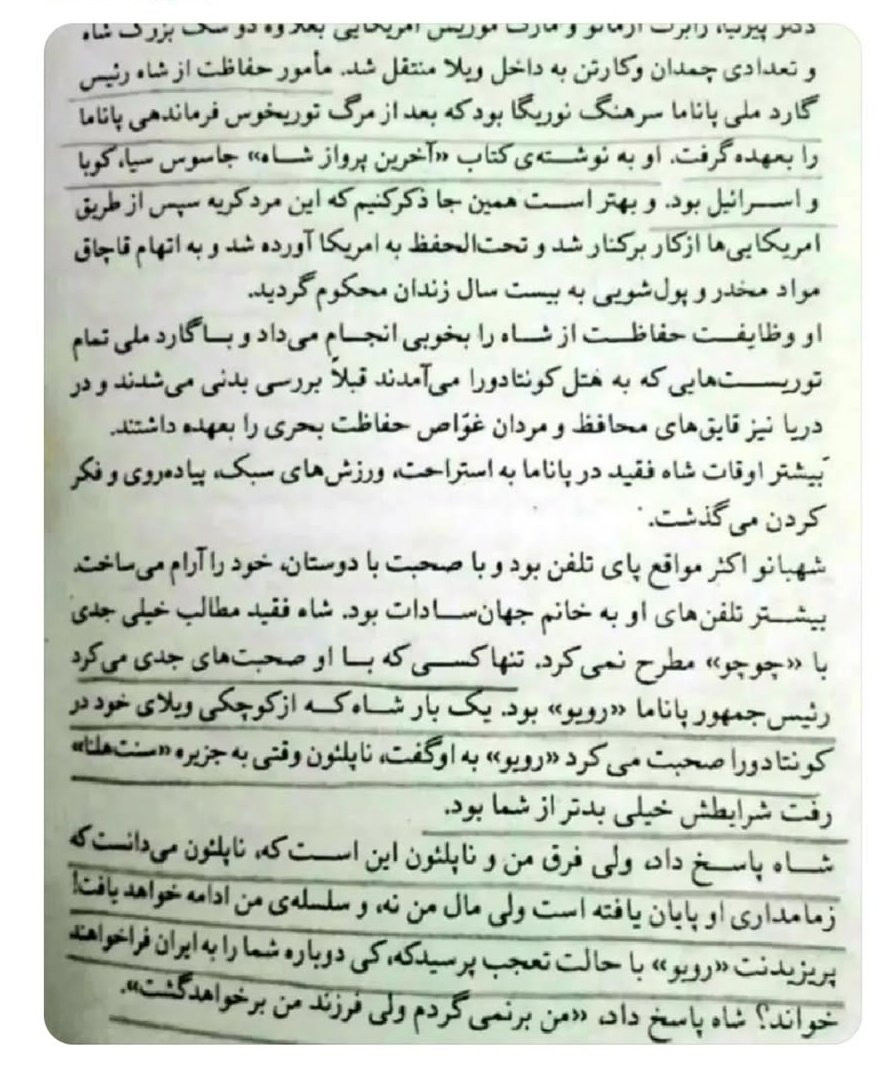 دکتر پیرنیا، رابرت آرمائو و مارک موریس امریکایی بعلاوه دو سگ بزرگ شاه
و تعدادی چمدان وکارتن به داخل ویلا منتقل شد. مأمور حفاظت از شاه رئیس
گارد ملی پاناما سرهنگ نوریگا بودکه بعد از مرگ توریخوس فرماندهی پاناما
را بعهده گرفت. او به نوشته‌ی کتاب «آخرین پرواز شاه» جاسوس سیا، کوبا
و اسرائیل بود. و بهتر است همین جا ذکرکنیم که این مرد کریه سپس از طریق
امریکایی‌ها ازکار برکنار شد و تحت‌الحفظ به امریکا آورده شد و به اتهام قاچاق
مواد مخدر و پول‌شویی به بیست سال زندان محکوم گردید.
او وظایفت حفاظت از شاه را بخوبی انجام می‌داد و با گارد ملی تمام
توریست‌هایی که به هتل کونتادورا می‌آمدند قبلاً بررسی بدنی می‌شدند و در
دریا نیز قایق‌های محافظ و مردان غوّاص حفاظت بحری را بعهده داشتند.
بیشتر اوقات شاه فقید در پاناما به استراحت، ورزش‌های سبک، پیاده‌روی و فکر
کردن می‌گذشت.
شهبانو اکثر مواقع پای تلفن بود و با صحبت با دوستان، خود را آرام می‌ساخت.
بیشتر تلفن‌های او به خانم جهان‌سادات بود. شاه فقید مطالب خیلی جدی
با «چوچو» مطرح نمی‌کرد. تنها کسی که با او صحبت‌های جدی می‌کرد
رئیس‌جمهور پاناما «رویو» بود. یک بار شاه که ازکوچکی ویلای خود در
کونتادورا صحبت می‌کرد «رویو» به اوگفت، ناپلئون وقتی به جزیره «سنت‌هلنا»
رفت شرابطش خیلی بدتر از شما بود.
شاه پاسخ داد، ولی فرق من و ناپلئون این است که، ناپلئون می‌دانست که
زمامداری او پایان یافته است ولی مال من نه، و سلسله‌ی من ادامه خواهد یافت!
پریزیدنت «رویو» با حالت تعجب پرسیدکه، کی دوباره شما را به ایران فراخواهند
خواند؟ شاه پاسخ داد، «من برنمی‌گردم ولی فرزند من برخواهدگشت».